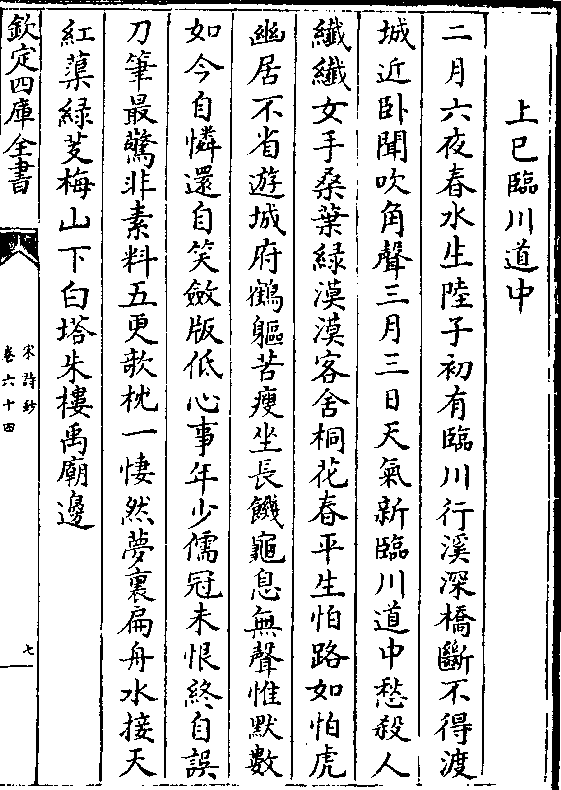 上巳臨川道中
二月六夜春水生陸子初有臨川行溪深橋斷不得渡
城近卧聞吹角聲三月三日天氣新臨川道中愁殺人
纖纖女手桑葉緑漠漠客舍桐花春平生怕路如怕虎
幽居不省遊城府鶴軀苦瘦坐長饑龜息無聲惟默數
如今自憐還自笑斂版低心事年少儒冠未恨終自誤
刀筆最驚非素料五更欹枕一悽然夢裏扁舟水接天
紅蕖緑芰梅山下白塔朱樓禹廟邊
欽定四庫全書
宋詩鈔
卷六十四
七